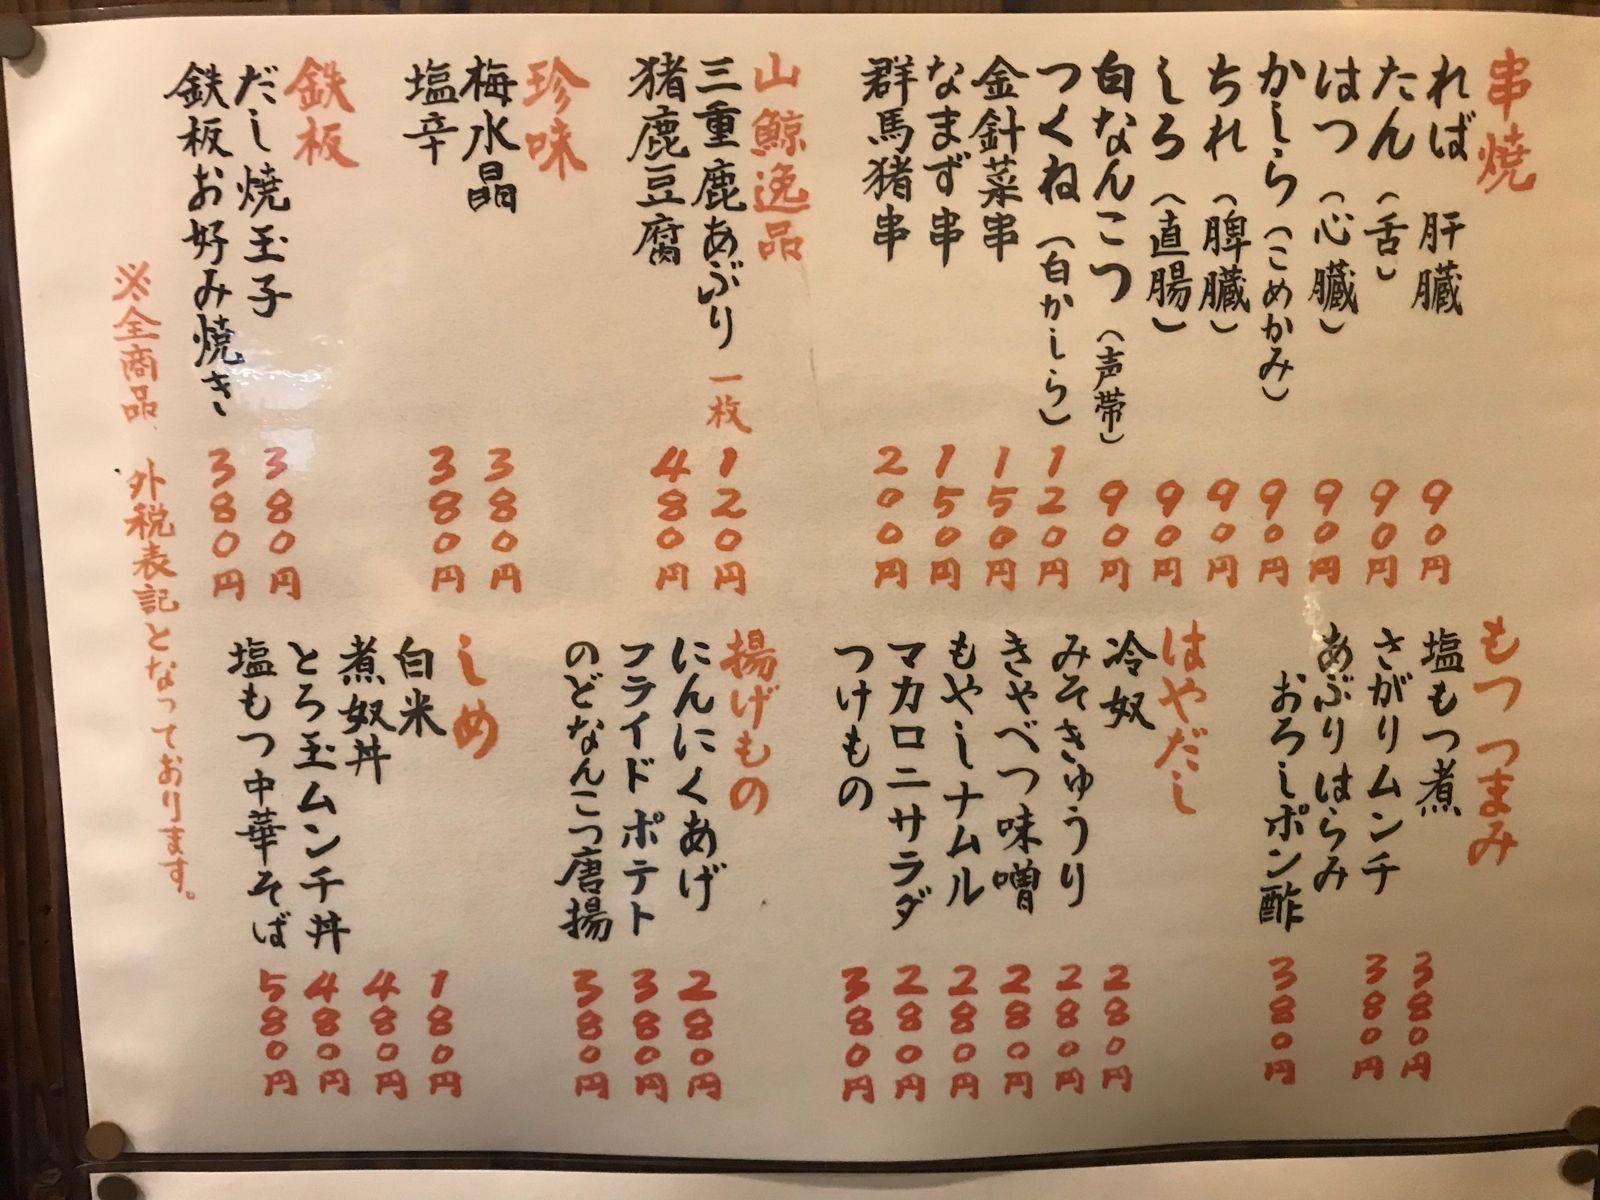 串焼
れば 肝臓 90円
たん（舌） 90円
はつ（心臓） 90円
かしら（こめかみ） 90円
ちれ（脾臓） 90円
しろ（直腸） 90円
白なんこつ（声帯） 90円
つくね（白かしら） 120円
金針菜串 150円
なまず串 150円
群馬猪串 200円
山鯨逸品
三重鹿あぶり 一枚 120円
猪鹿豆腐 480円
珍味
梅水晶 380円
塩辛 380円
鉄板
だし焼玉子 380円
鉄板お好み焼き 380円
もつつまみ
塩もつ煮 380円
さがりムンチ 380円
あぶりはらみ
おろしポン酢 380円
はやだし
冷奴 280円
みそきゅうり 280円
きゃべつ味噌 280円
もやしナムル 280円
マカロニサラダ 280円
つけもの 380円
揚げもの
にんにくあげ 280円
フライドポテト 380円
のどなんこつ唐揚 380円
しめ
白米 180円
煮奴丼 480円
とろ玉ムンチ丼 480円
塩もつ中華そば 580円
※全商品 外税表記となっております。